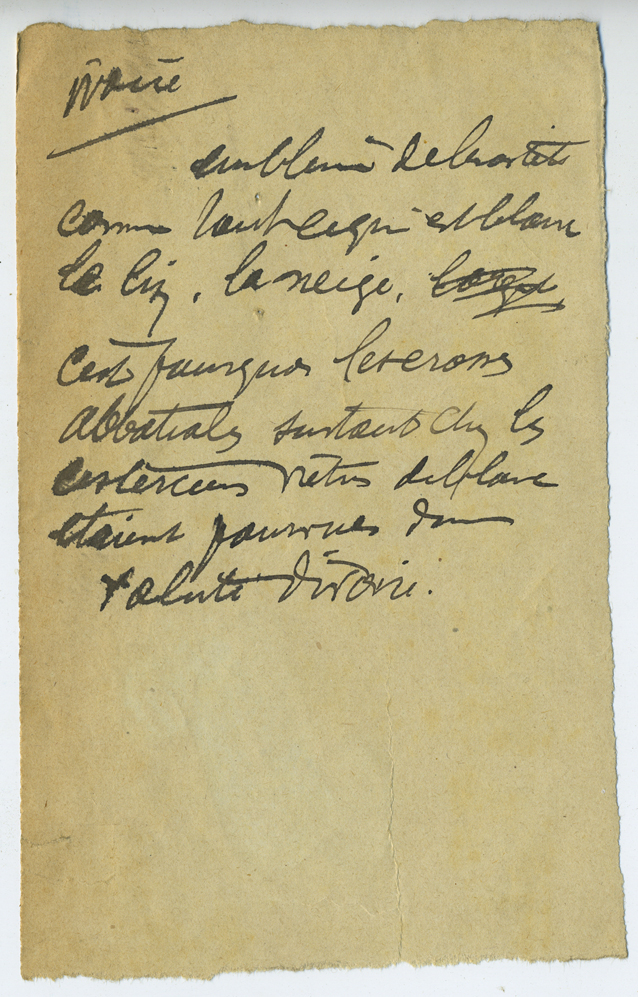 ivoire
emblème de chasteté
comme tout ce qui est blanc
le lis, la neige,
c'est pourquoi les crosses
abbatiales surtout chez les
cisterciens vêtus de blanc
étaient pourvues d'une
volute d'ivoire.